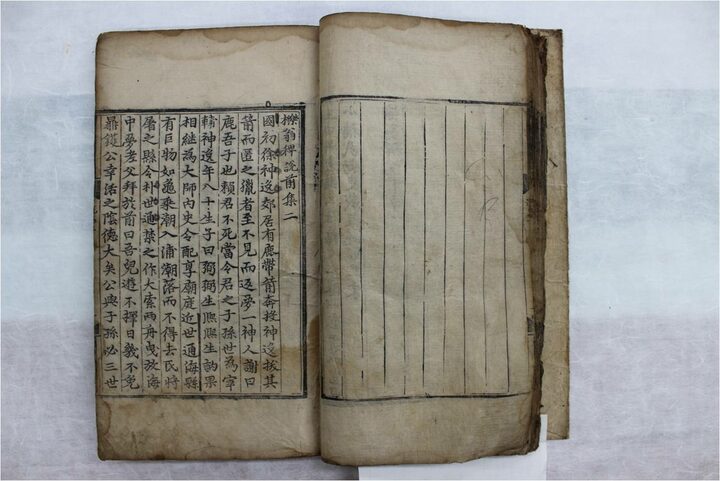 櫟翁稗說前集二
國初徐神逸郊居有鹿帶箭奔投神逸拔其
箭而匿之獵者至不見而返夢一神人謝曰
鹿吾子也賴君不死當令君之子孫世為宰
轄神逸年八十生子曰弼弼生熙熙生訥果
相継為大師內史令配享廟庭近世通海縣
有巨物如龜乘潮入浦潮落而不得去民將
屠之縣令朴世通禁之作大索兩舟曳放海
中夢老父拜於前曰吾兒遊不擇日幾不免
鼎鑊公幸活之陰德大矣公與子孫必三世